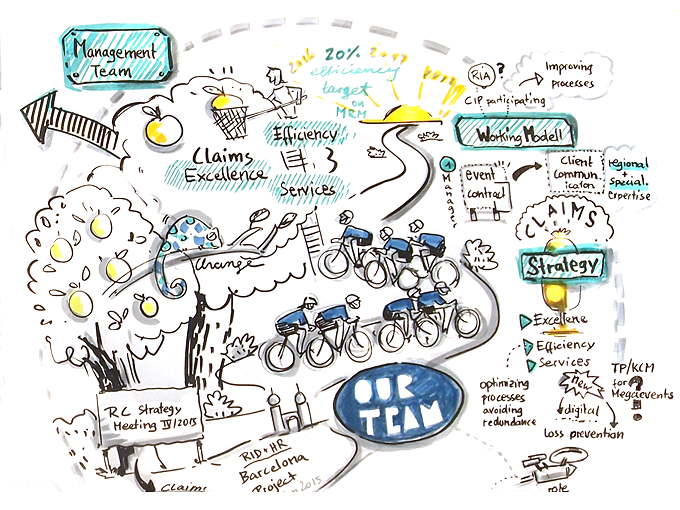 Management
Team
20%
efficiency
target
on
MRM
RIA
?
Improving
processes
CIP participating
Working Modell
Efficiency
Claims
Excellence
Services
1
Manager
event
contract
Client
Commun.
icaton
regional
+
special.
expertise
CLAIMS
Strategy
change
Excellene
Efficiency
Services
optimizing
processes
avoiding
redundance
new
digital
Loss prevention
TP/KCM
for
Megaevents
?!
OUR
TEAM
RC Strategy
Meeting IV/2015
RID+HR
Barcelona
Project
2015
CLAIMS
role